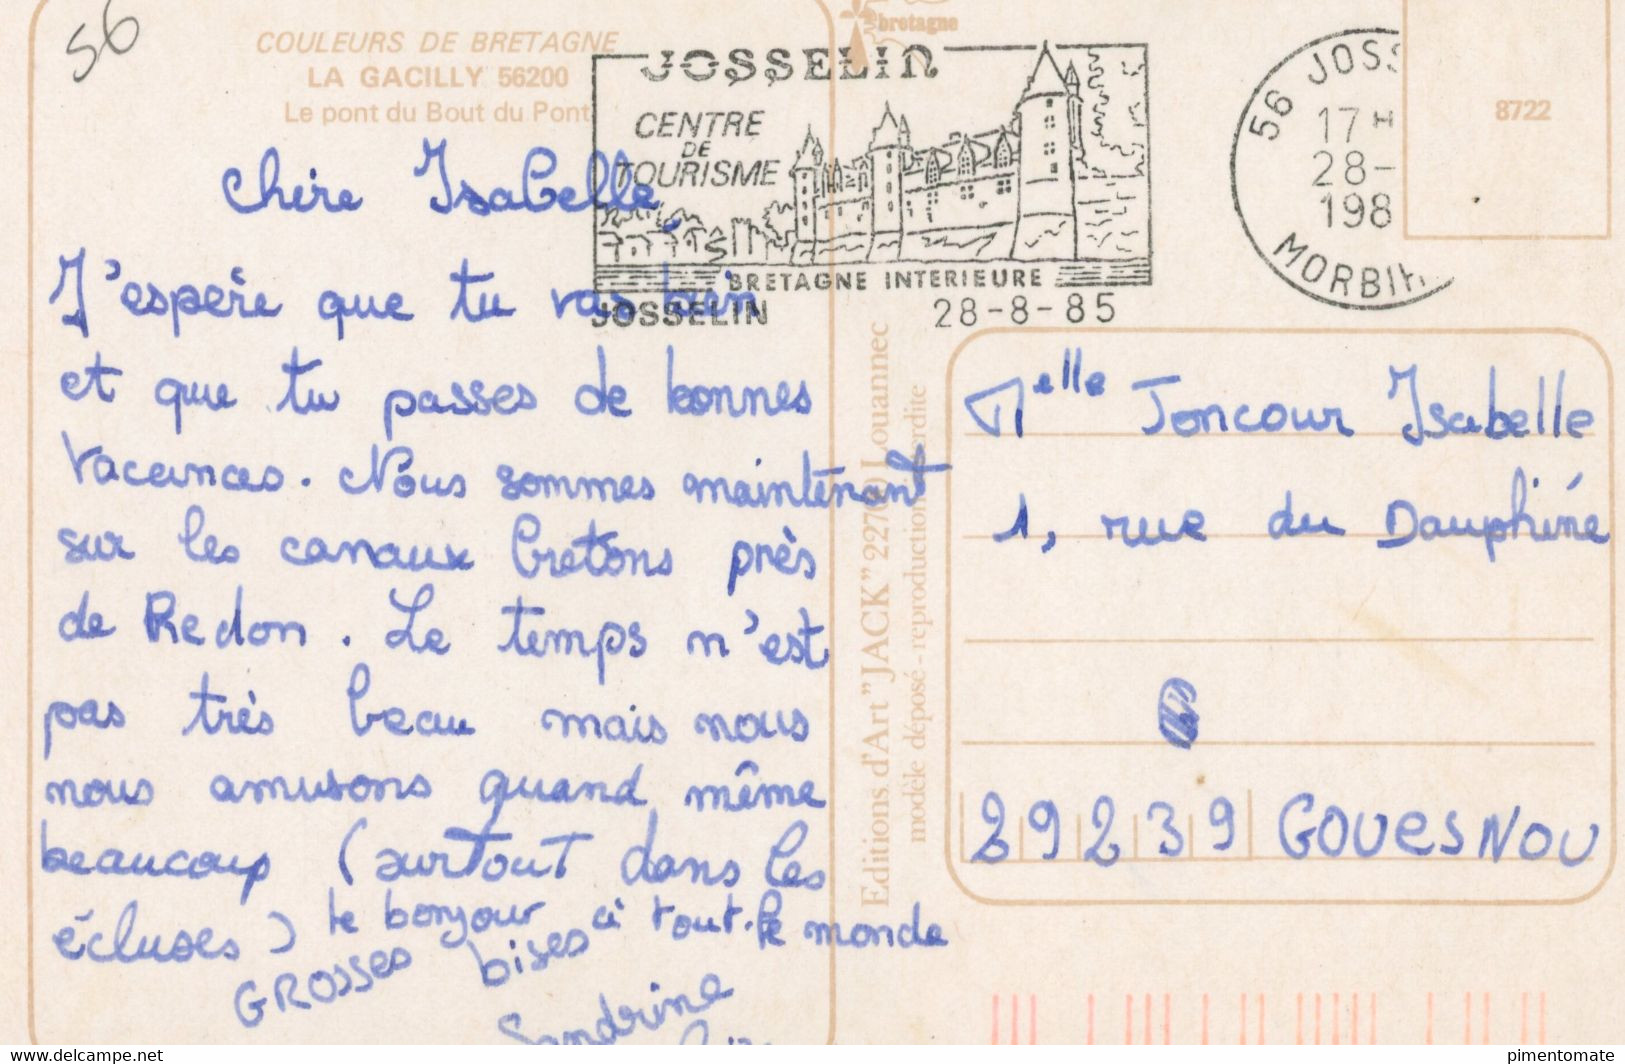 56
COULEURS DE BRETAGNE
LA GACILLY 56200
Le pont du Bout du Pont
bretagne
JOSSELIN
CENTRE
DE
TOURISME
BRETAGNE INTERIEURE
JOSSELIN 28-8-85
56 JOSS
17 H
28-
198
MORBIH
8722
Chère Isabelle,
J'espère que tu vas bien
et que tu passes de bonnes
vacances. Nous sommes maintenant
sur les canaux bretons près
de Redon. Le temps n'est
pas très beau mais nous
nous amusons quand même
beaucoup (surtout dans les
écluses)
le bonjour à tout le monde
GROSSES bises
Sandrine
Editions d'Art "JACK" 22700 Louannec
modèle déposé - reproduction interdite
Melle Joncour Isabelle
1, rue du Dauphiné
29239 GOUESNOU
delcampe.net
pimentomate